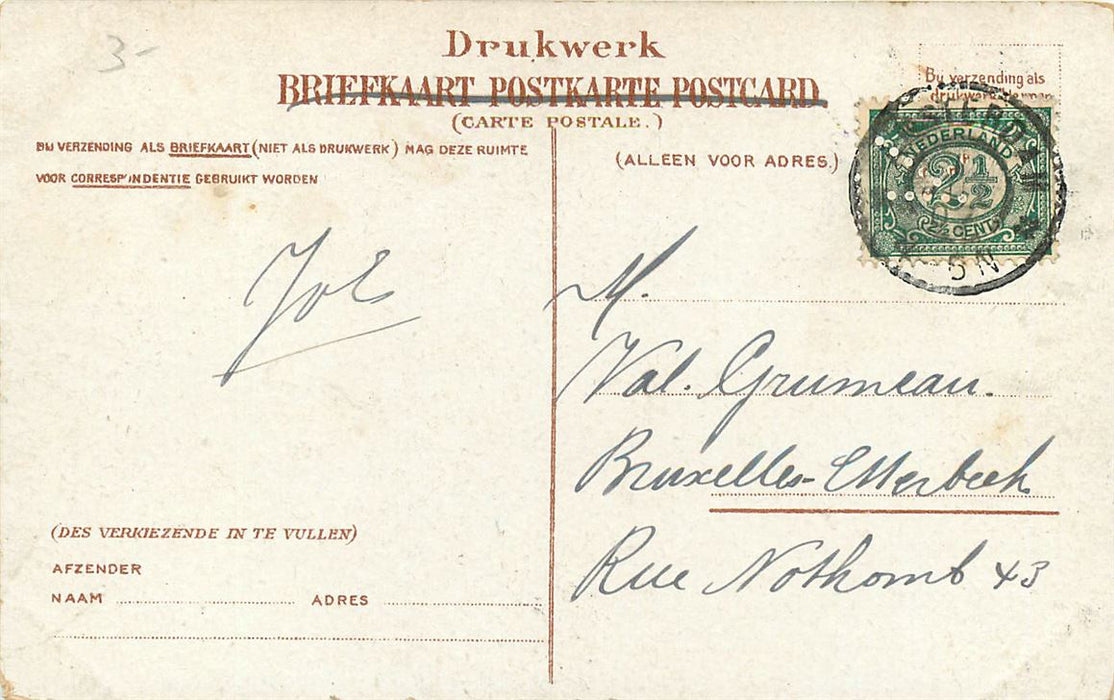 3-
Drukwerk
BRIEFKAART POSTKARTE POSTCARD
(CARTE POSTALE.)
Bij verzending als
BIJ VERZENDING ALS BRIEFKAART (NIET ALS DRUKWERK) MAG DEZE RUIMTE
VOOR CORRESPONDENTIE GEBRUIKT WORDEN
(ALLEEN VOOR ADRES.)
NEDERLAND
2½
2½ CENT
M.
Val. Grumeau.
Bruxelles-Etterbeek
Rue Nothomb 43
(DES VERKIEZENDE IN TE VULLEN)
AFZENDER
NAAM ADRES